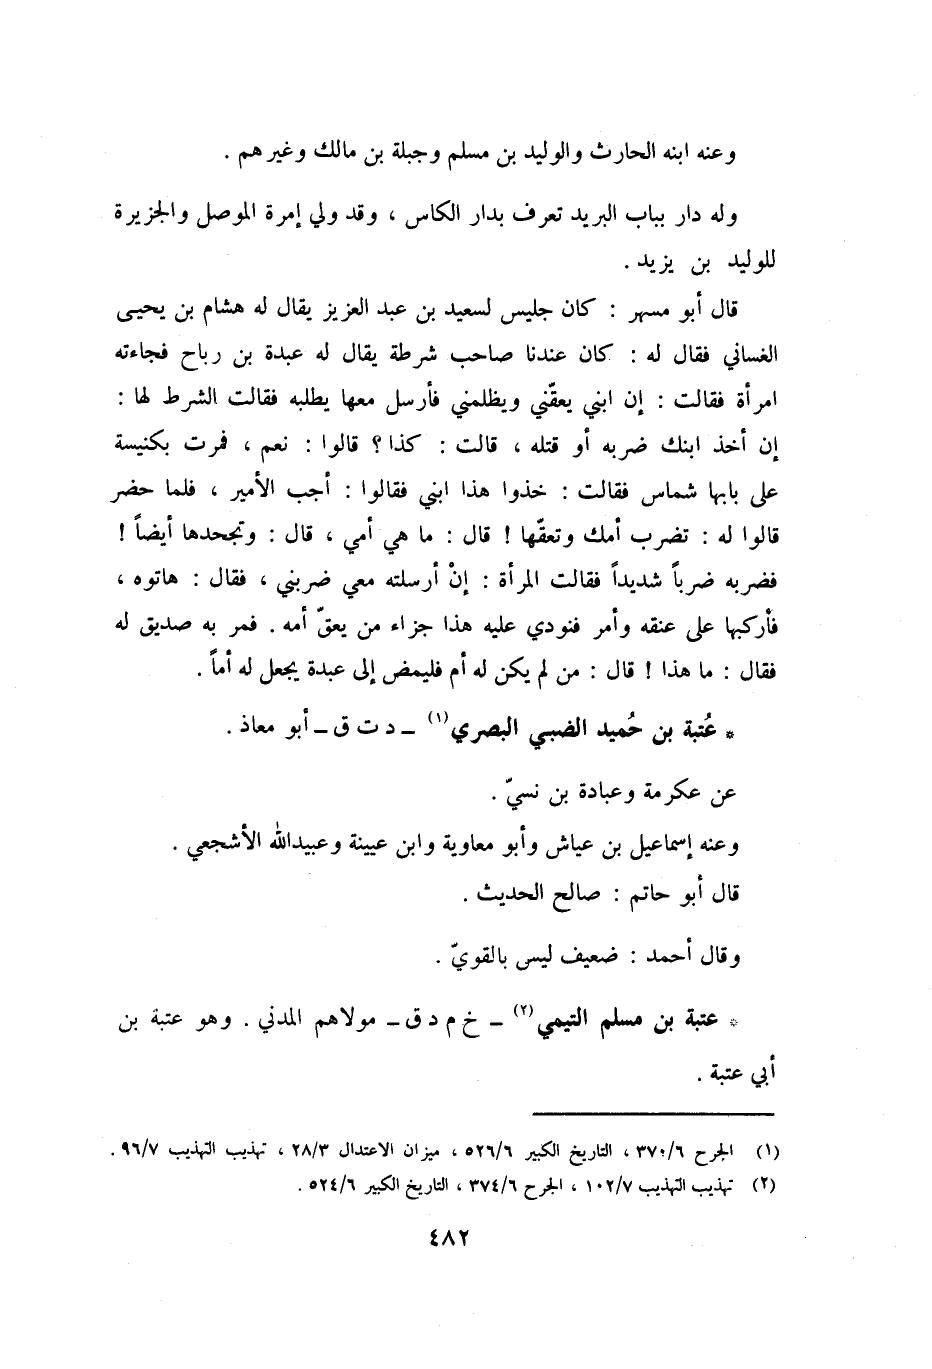 وعنه ابنه الحارث والوليد بن مسلم وجبلة بن مالك وغيرهم .
وله دار بباب البريد تعرف بدار الكاس ، وقد ولي إمرة الموصل والجزيرة
للوليد بن يزيد .
قال أبو مسهر : كان جليس لسعيد بن عبد العزيز يقال له هشام بن يحيـى
الغساني فقال له : كان عندنا صاحب شرطة يقال له عبدة بن رباح فجاءته
امرأة فقالت : إن ابني يعقّني ويظلمني فأرسل معها يطلبه فقالت الشرط لها :
إن أخذ ابنك ضربه أو قتله ، قالت : كذا ؟ قالوا : نعم ، فمرت بكنيسة
على بابها شماس فقالت : خذوا هذا ابني فقالوا : أجب الأمير ، فلما حضر
قالوا له : تضرب أمك وتعقّها ! قال : ما هي أمي ، قال : وتجحدها أيضاً !
فضربه ضرباً شديداً فقالت المرأة : إنْ أرسلته معي ضربني ، فقال : هاتوه ،
فأركبها على عنقه وأمر فنودي عليه هذا جزاء من يعقّ أمه . فمر به صديق له
فقال : ما هذا ! قال : من لم يكن له أم فليمض إلى عبدة يجعل له أماً .
* عُتبة بن حُميد الضبي البصري(١) ـ د ت ق ـ أبو معاذ .
عن عكرمة وعبادة بن نسيّ .
وعنه إسماعيل بن عياش وأبو معاوية وابن عيينة وعبيدالله الأشجعي .
قال أبو حاتم : صالح الحديث .
وقال أحمد : ضعيف ليس بالقويّ .
* عتبة بن مسلم التيمي(٢) ـ خ م د ق ـ مولاهم المدني . وهو عتبة بن
أبي عتبة .
(١) الجرح ٣٧٠/٦ ، التاريخ الكبير ٥٢٦/٦ ، ميزان الاعتدال ٢٨/٣ ، تهذيب التهذيب ٩٦/٧ .
(٢) تهذيب التهذيب ١٠٢/٧ ، الجرح ٣٧٤/٦ ، التاريخ الكبير ٥٢٤/٦ .
٤٨٢